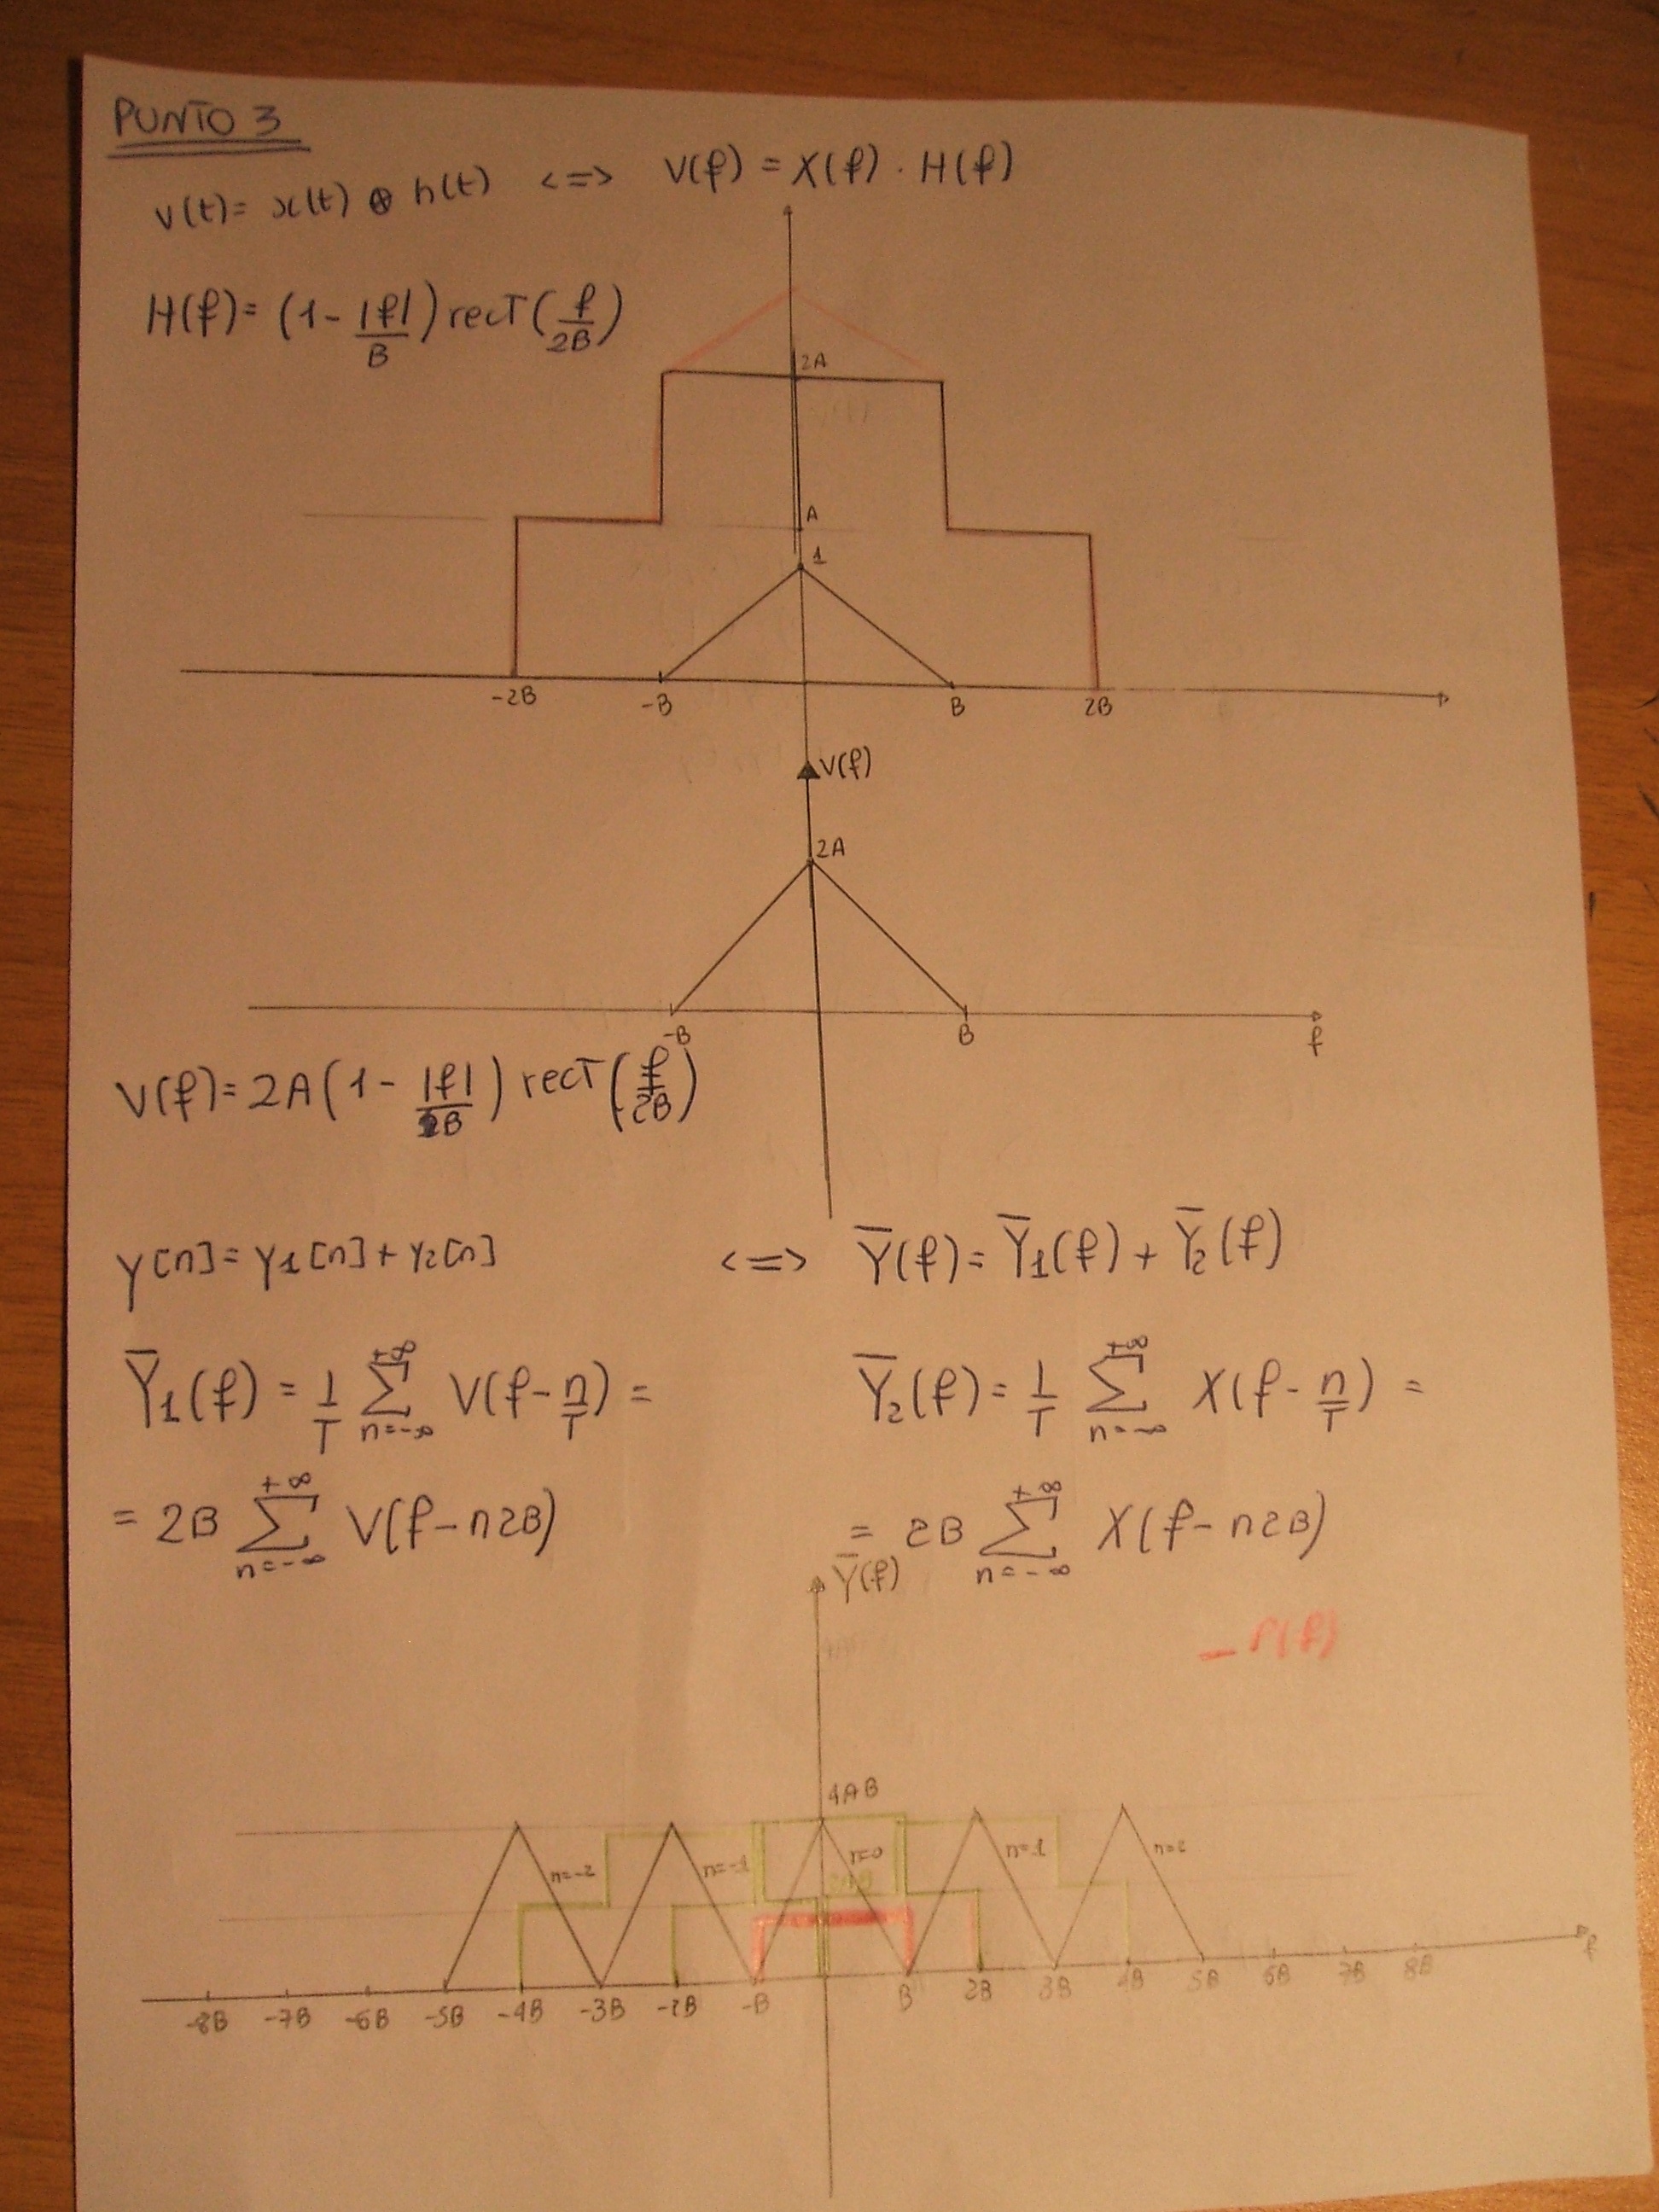 PUNTO 3
v(t)= x(t) ⊗ h(t) <=> V(f) = X(f) · H(f)
H(f)= (1- |f|/B) rect(f/2B)
2A
A
1
-2B -B B 2B
V(f)
2A
-B B f
V(f)= 2A(1- |f|/B) rect(f/2B)
y[n]= y1[n]+y2[n] <=> Y̅(f)= Y̅1(f) + Y̅2(f)
Y̅1(f) = 1/T ∑ n=-∞ +∞ V(f-n/T) = Y̅2(f)= 1/T ∑ n=-∞ +∞ X(f- n/T) =
= 2B ∑ n=-∞ +∞ V(f-n2B) = 2B ∑ n=-∞ +∞ X(f- n2B)
Y̅(f)
4AB
n=-2 n=-1 n=0 n=1 n=2
2AB
-8B -7B -6B -5B -4B -3B -2B -B B 2B 3B 4B 5B 6B 7B 8B f